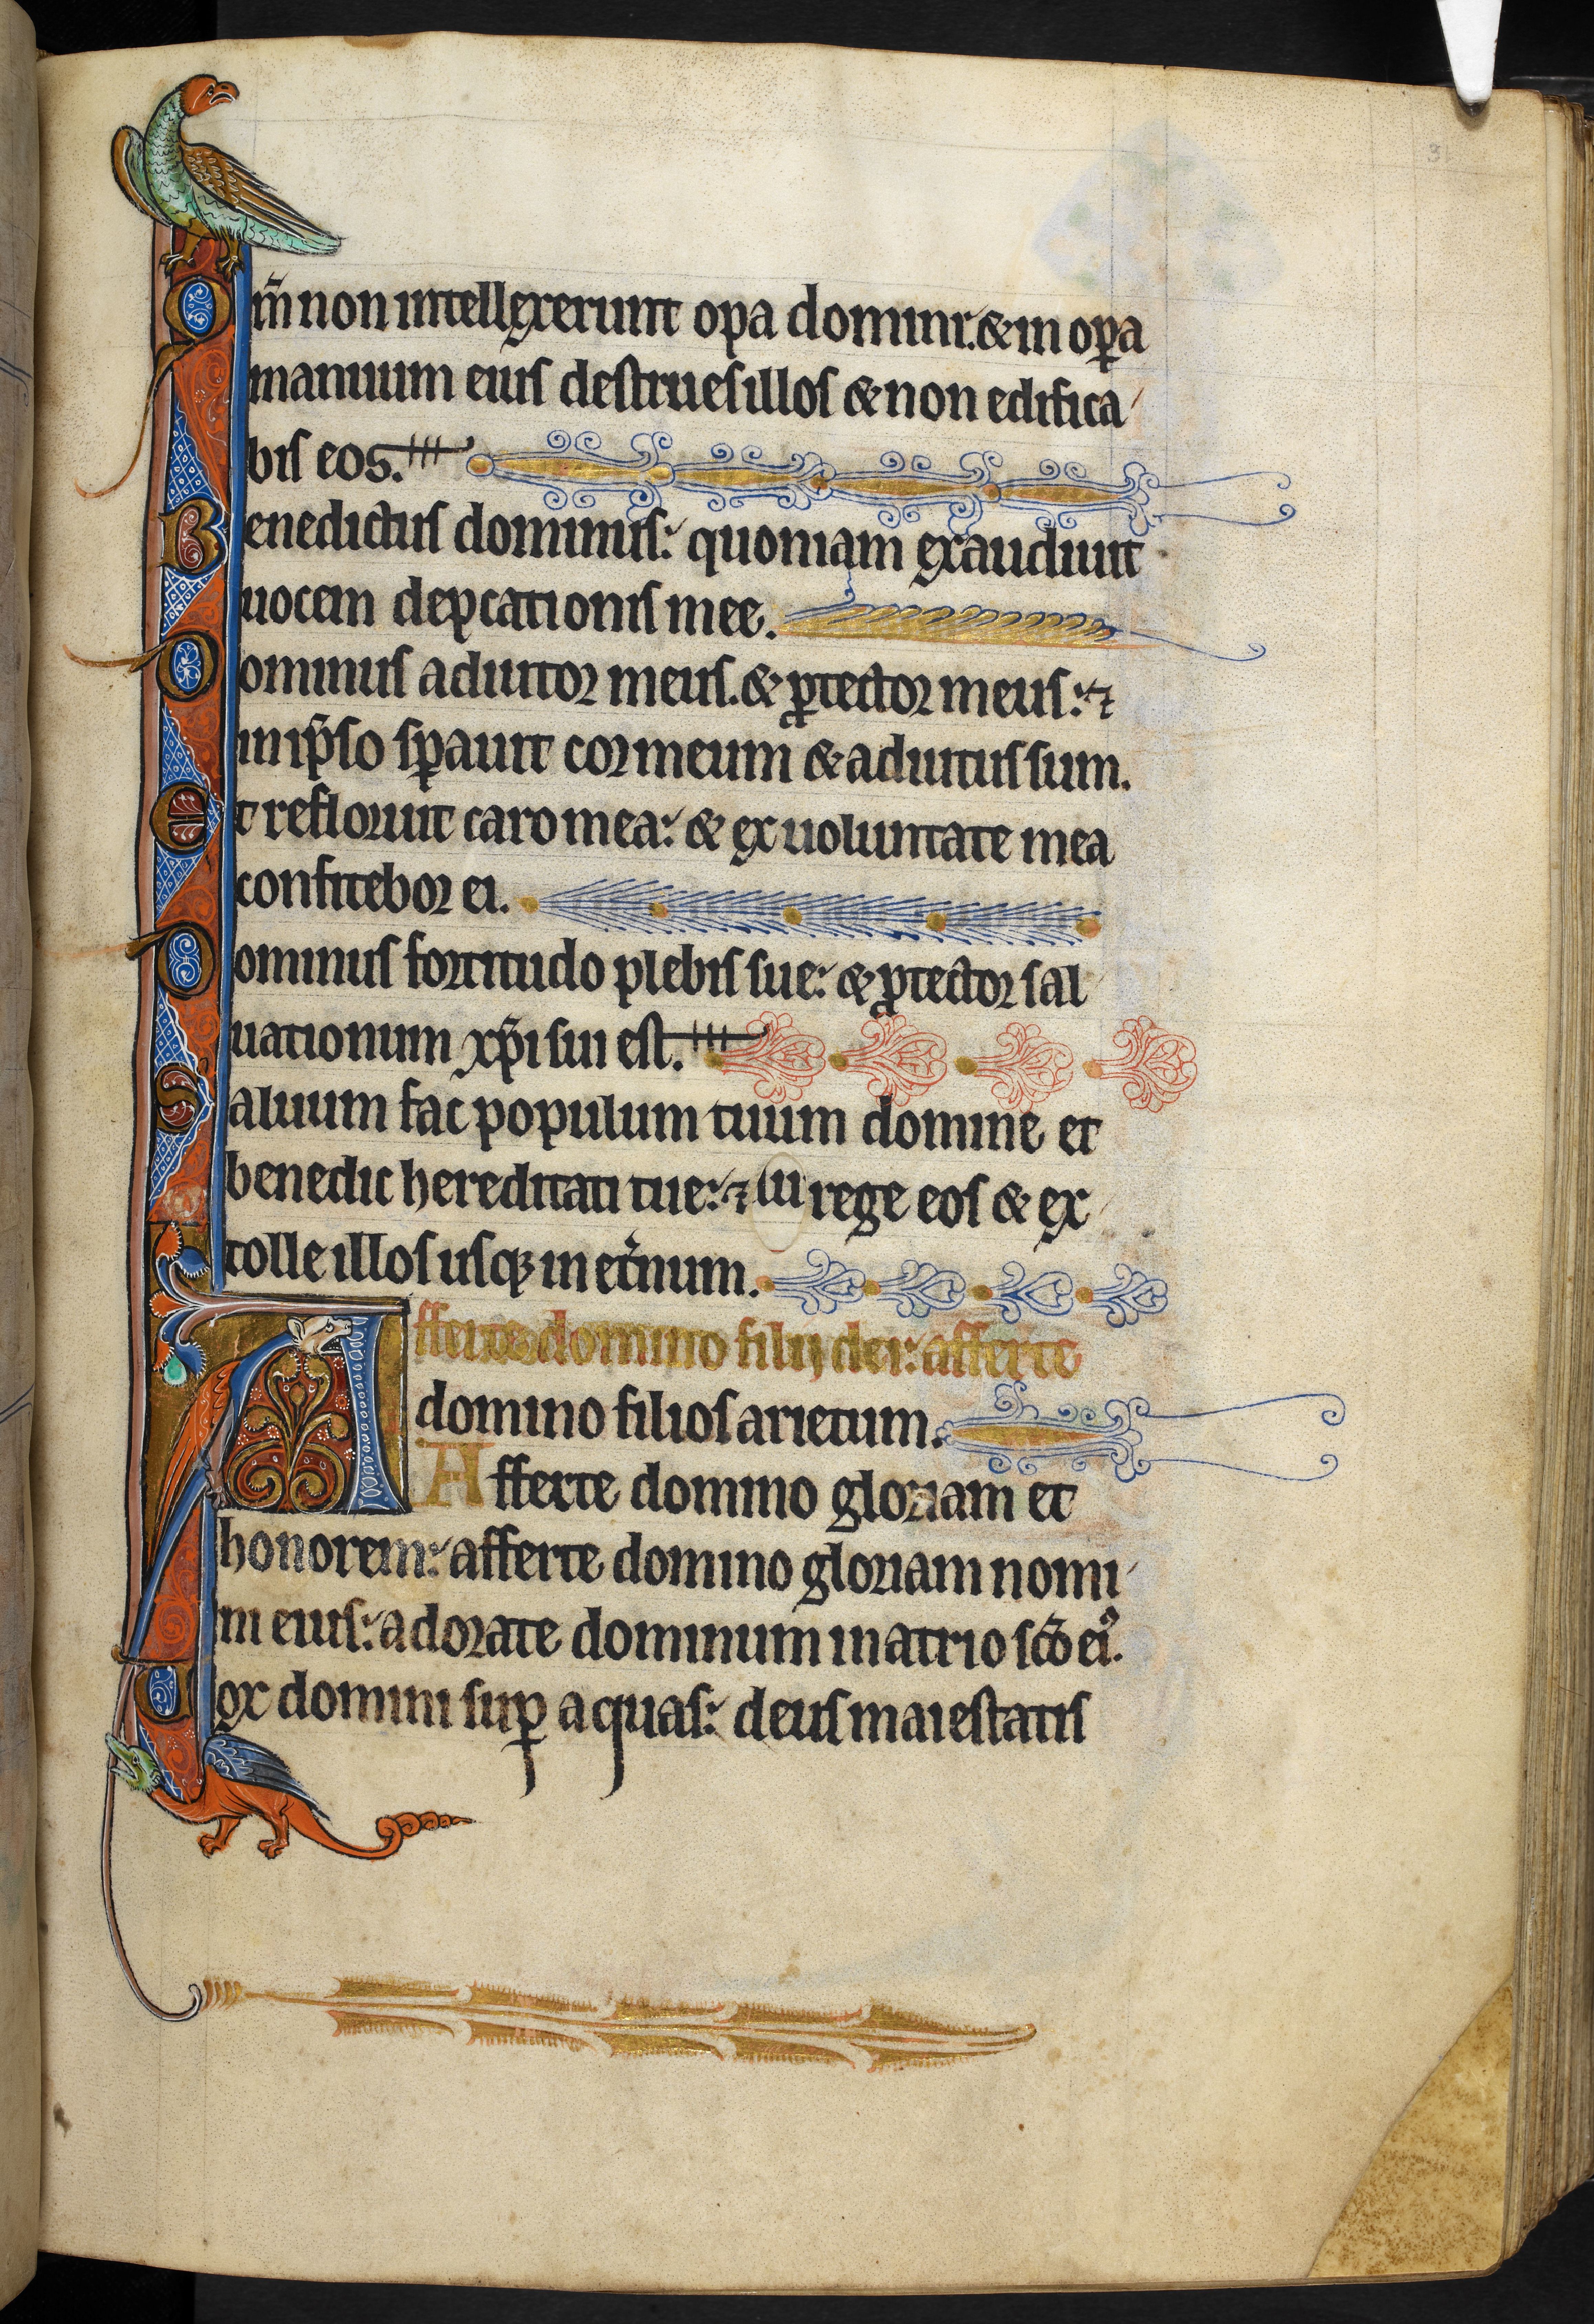 31
Qm̄ non intellexerunt opa domini. & in oꝑa
manuum eius destrues illos & non edifica
bis eos.
Benedictus dominus: quoniam exaudiuit
uocem dep̱cationis mee.
Dominus adiutor meus. & ꝓtector meus: ⁊
in ip̄so sꝑauit cor meum & adiutus sum.
Et refloruit caro mea: & ex uoluntate mea
confitebor ei.
Dominus fortitudo plebis sue: & ꝓtector sal
uationum xp̄i sui est.
Saluum fac populum tuum domine et
benedic hereditati tue: ⁊ rege eos & ex
tolle illos usq; in et̄num.
Afferte domino filij dei: afferte
domino filios arietum.
Afferte domino gloriam et
honorem: afferte domino gloriam nomi
ni eius: adorate dominum in atrio sc̄o eiꝰ.
Uox domini suꝑ aquas: deus maiestatis